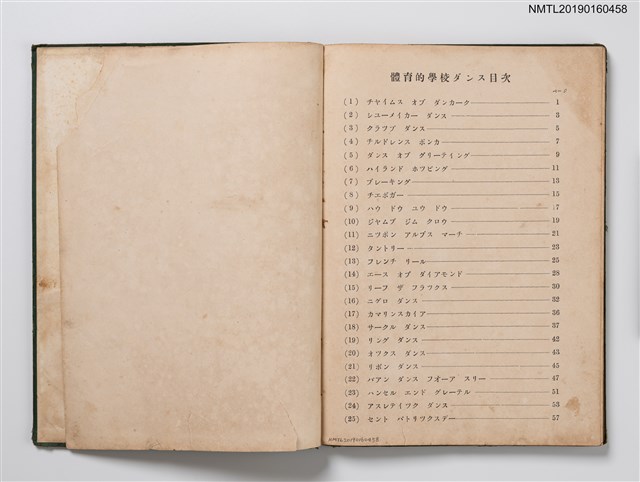 NMTL20190160458
體育的學校ダンス目次
ページ
(1) チャイムス オブ ダンカーク 1
(2) シユーメイカー ダンス 3
(3) クラツプ ダンス 5
(4) チルドレンス ポンカ 7
(5) ダンス オブ グリーティング 9
(6) ハイランド ホツピング 11
(7) ブレーキング 13
(8) チエボガー 15
(9) ハウ ドウ ユウ ドウ 17
(10) ジヤムプ ジム クロウ 19
(11) ニツポン アルプス マーチ 21
(12) タントリー 23
(13) フレンチ リール 25
(14) エース オブ ダイアモンド 28
(15) リーフ ザ フラツクス 30
(16) ニグロ ダンス 32
(17) カマリンスカイア 36
(18) サークル ダンス 37
(19) リング ダンス 42
(20) オツクス ダンス 43
(21) リボン ダンス 45
(22) バアン ダンス フオーア スリー 47
(23) ハンセル エンド グレーテル 51
(24) アスレテイツク ダンス 53
(25) セント パトリツクスデー 57
NMTL20190160458